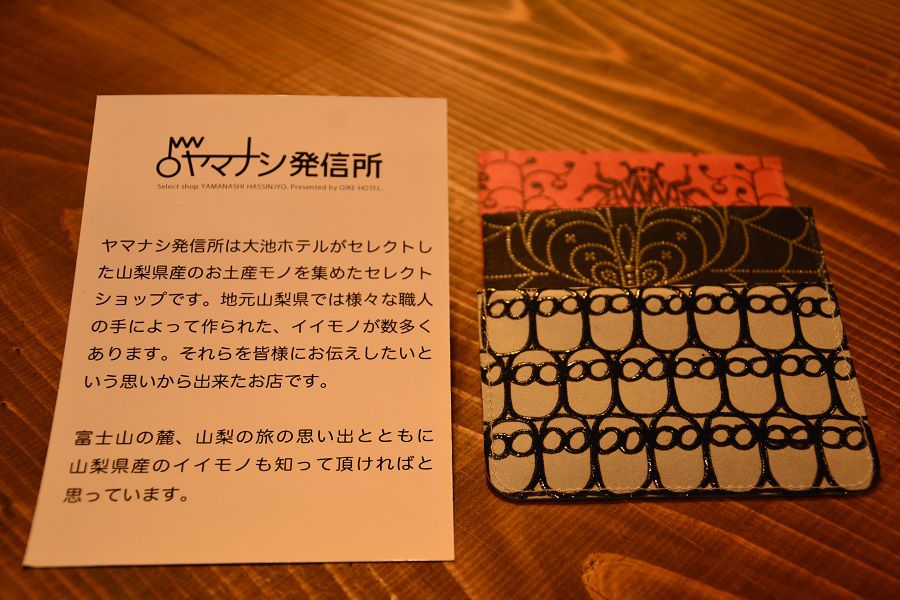 ヤマナシ発信所
Select shop YAMANASHI HASSINJYO. Presented by OIKE HOTEL.
ヤマナシ発信所は大池ホテルがセレクトし
た山梨県産のお土産モノを集めたセレクト
ショップです。地元山梨県では様々な職人
の手によって作られた、イイモノが数多く
あります。それらを皆様にお伝えしたいと
いう思いから出来たお店です。
富士山の麓、山梨の旅の思い出とともに
山梨県産のイイモノも知って頂ければと
思っています。